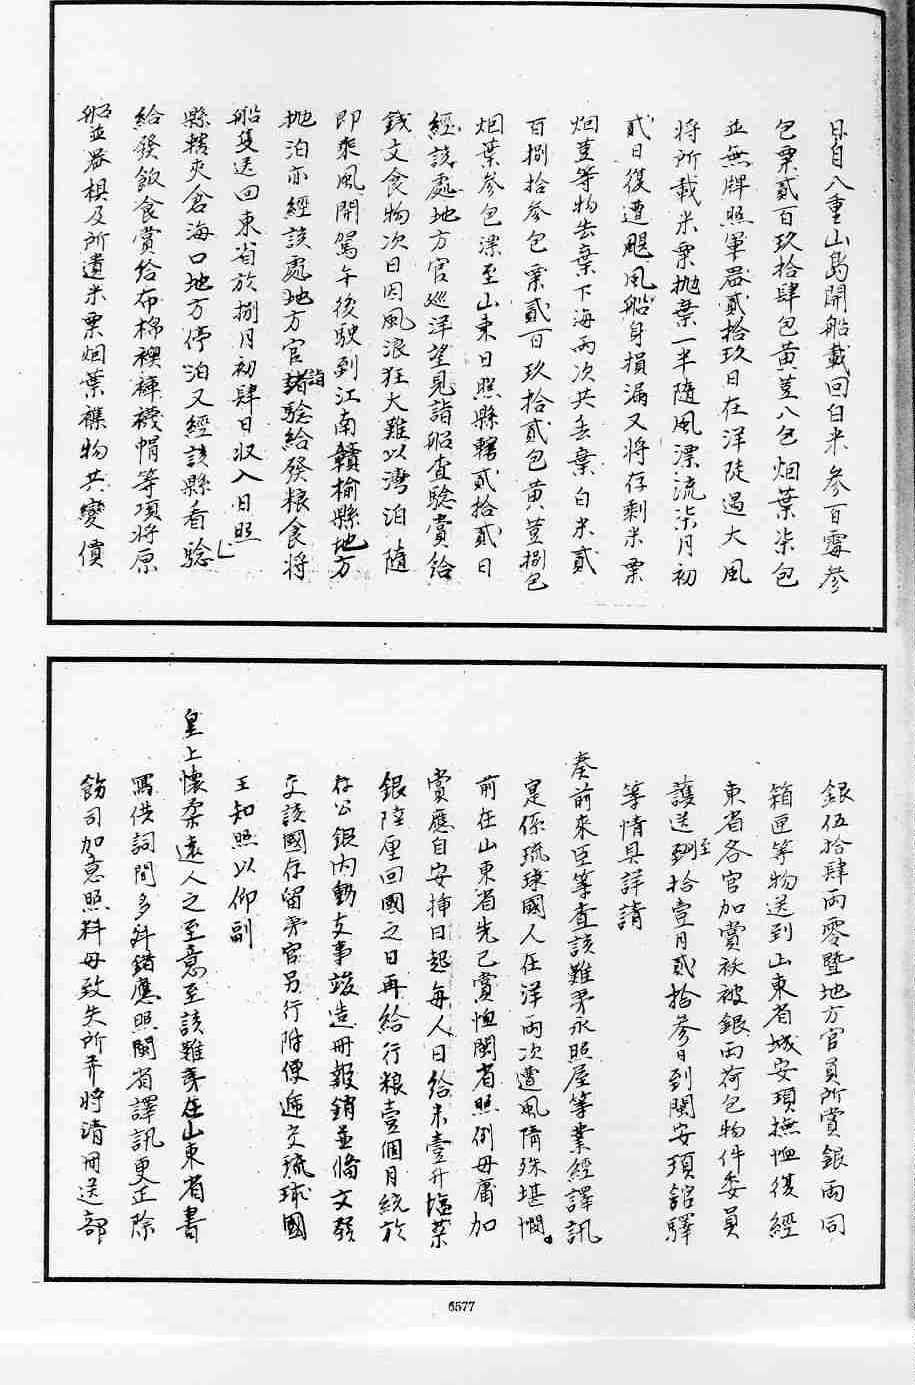 日自八重山島開船載回白米參百零參
包粟貳百玖拾肆包黃荳八包烟葉柒包
並無牌照軍器貳拾玖日在洋陡遇大風
將所載米粟拋棄一半隨風漂流柒月初
貳日復遭颶風船身損漏又將存剩米粟
烟荳等物丟棄下海兩次共丟棄白米貳
百捌拾參包粟貳百玖拾貳包黃荳捌包
烟葉參包漂至山東日照縣轄貳拾貳日
經該處地方官巡洋望見詣船查驗賞給
錢文食物次日因風浪狂大難以灣泊隨
即乘風開駕午後駛到江南贛榆縣地方
拋泊亦經該處地方官詣驗給發粮食將
船隻送回東省於捌月初肆日收入日照
縣轄夾倉海口地方停泊又經該縣看驗
給發飯食賞給布棉襖褲襪帽等項將原
船並器棋及所遺米粟烟葉襍物共變價
銀伍拾肆兩零暨地方官員所賞銀兩同
箱匣等物送到山東省城安頓撫恤復經
東省各官加賞袄被銀兩荷包物件委員
護送至拾壹月貳拾參日到閩安頓館驛
等情具詳請
奏前來臣等查該難夷永照屋等業經譯訊
寔係琉球國人在洋兩次遭風情殊堪憫
前在山東省先已賞恤閩省照例毋庸加
賞應自安揷日起每人日給米壹升塩菜
銀陸厘回國之日再給行粮壹個月統於
存公銀內動支事竣造冊報銷並俻文發
交該國存留夷官另行附便遞交琉球國
王知照以仰副
皇上懷柔遠人之至意至該難夷在山東省書
寫供詞間多舛錯應照閩省譯訊更正除
飭司加意照料毋致失所并將清冊送部
6577